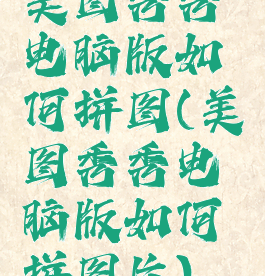 美图秀秀
电脑版如
何拼图(美
图秀秀电
脑版如何
拼图片)